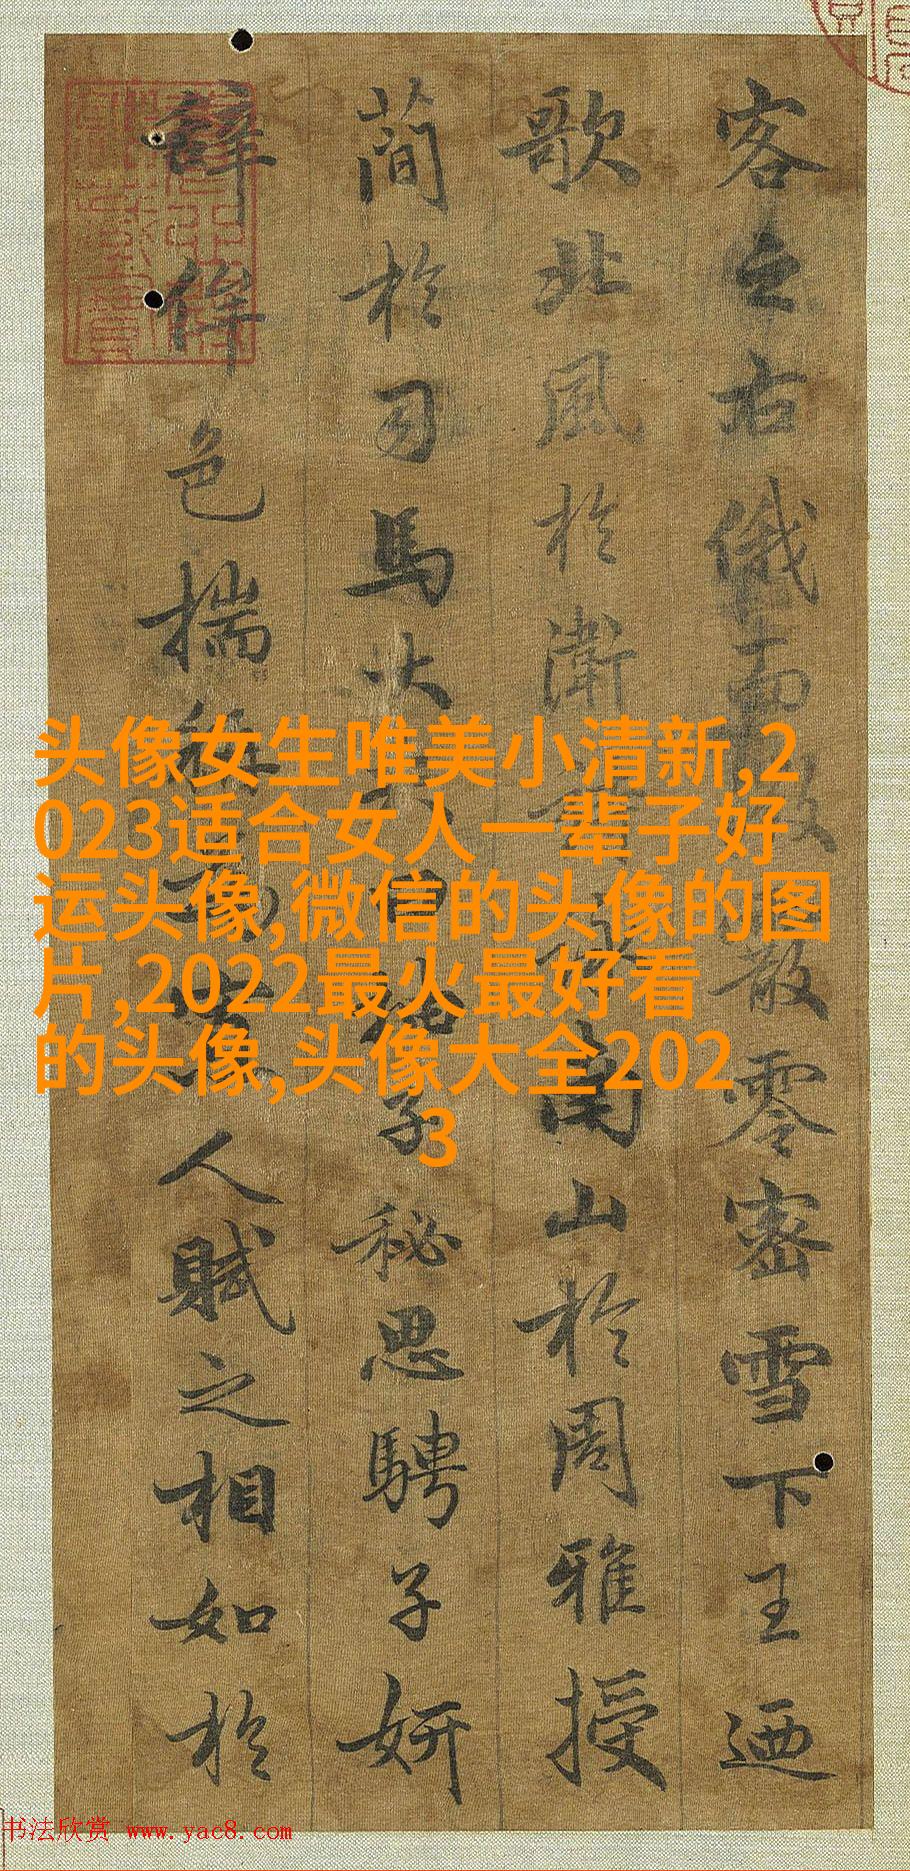 客之右俄而霰零密雪下王迺
歌北風於衛南山於周雅授
簡於司馬大子秘思騁子妍
辭侔色揣人賦之相如於
头像女生唯美小清新,2
023适合女人一辈子好
运头像,微信的头像的图
片,2022最火最好看
的头像,头像大全202
3
书法欣赏 www.yac8.com